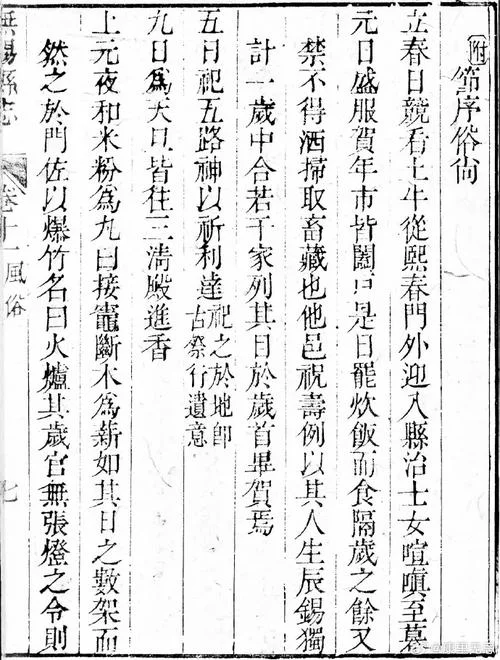 附
節序俗尚
立春日競看土牛從熙春門外迎入縣治士女喧嗔至暮
元日盛服賀年市皆闔戶是日罷炊飯而食隔歲之餘又
禁不得洒掃取畜藏也他邑祝壽例以其人生辰錫獨
計一歲中合若干家列其日於歲首畢賀焉
五日祀五路神以祈利達祀之於地即
古祭行遺意
九日為天旦皆往三清殿進香
上元夜和米粉為丸曰接竈斷木為薪如其日之數架而
然之於門佐以爆竹名曰火爐其歲官無張燈之令則
無錫縣志 卷十一 風俗 七